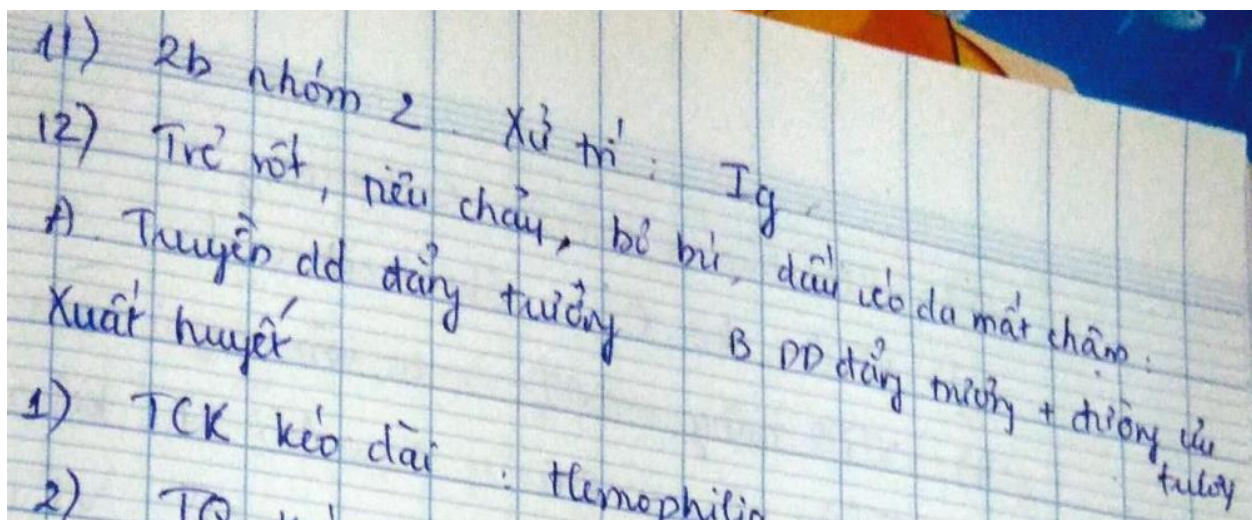 11) 2b nhóm 2. Xử trí: Ig.
12) Trẻ sốt, tiêu chảy, bỏ bú, dấu véo da mất chậm:
A. Truyền dd đẳng trương B DD đẳng trương + đường ưu trương
Xuất huyết
1) TCK kéo dài : Hemophilia
2) TQ